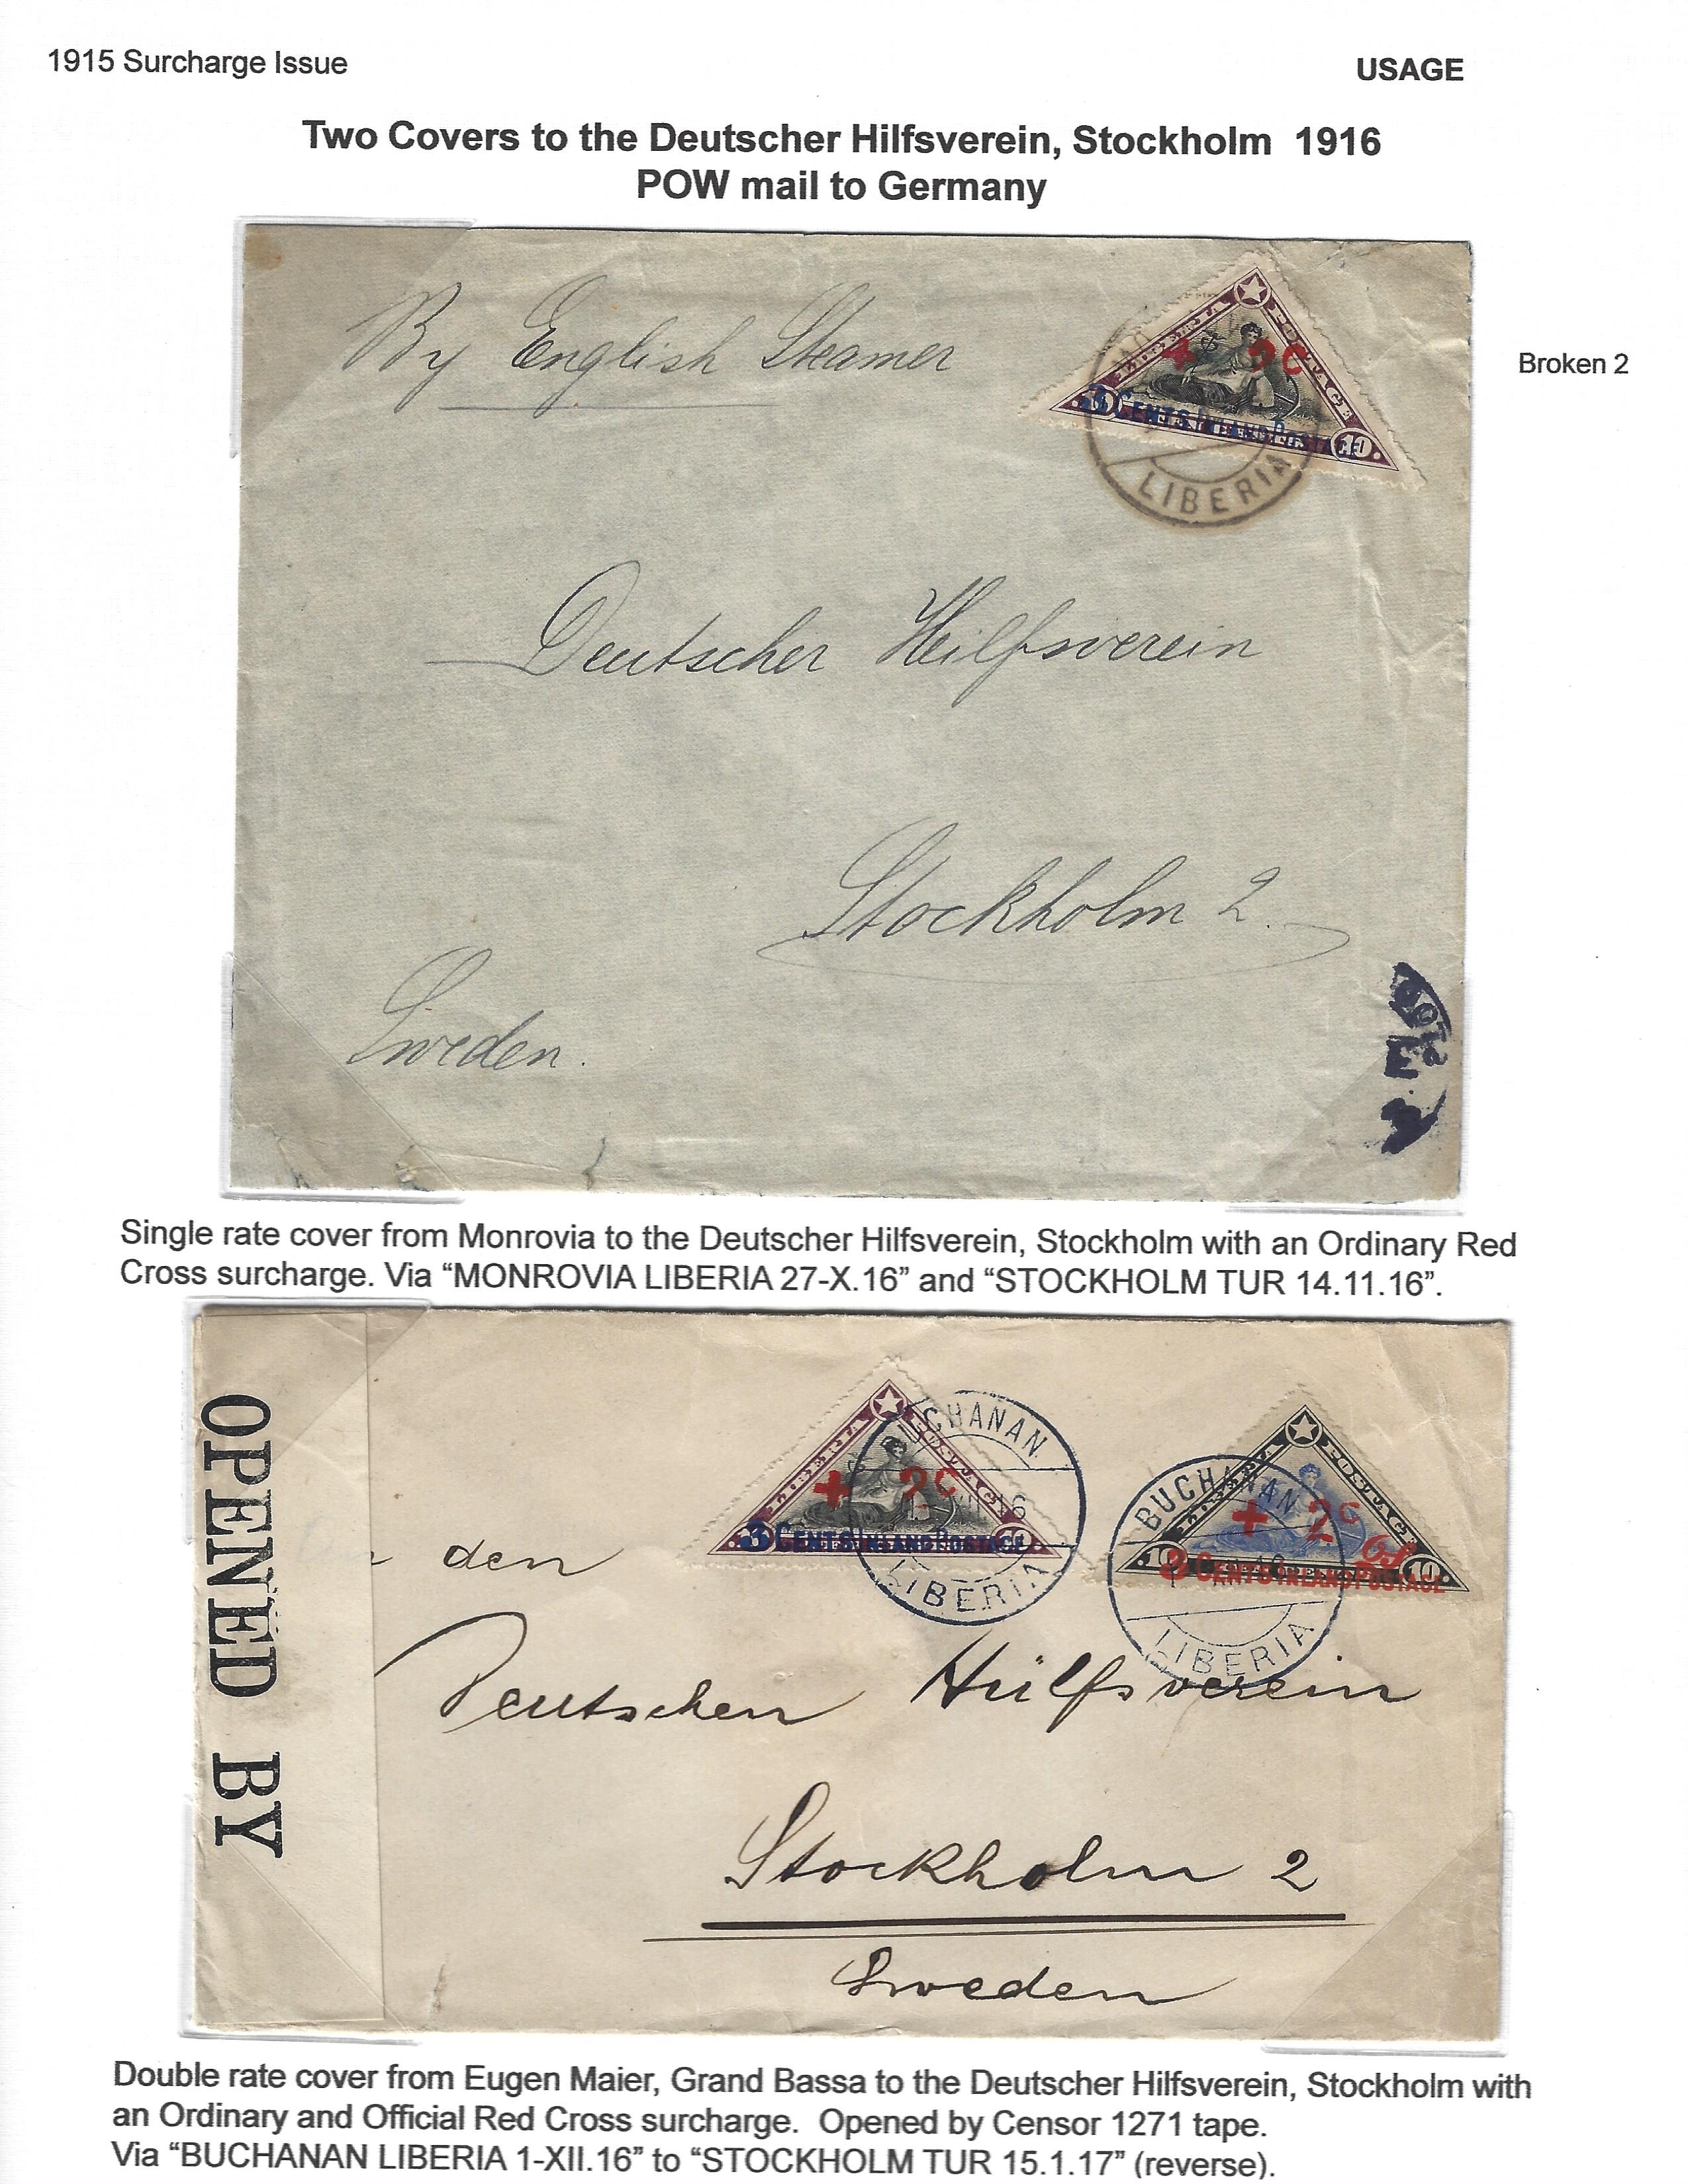 1915 Surcharge Issue
USAGE
Two Covers to the Deutscher Hilfsverein, Stockholm 1916
POW mail to Germany
By English Steamer
LIBERIA POSTAGE
+ 2c
3 CENTS INLAND POSTAGE
10
LIBERIA
Broken 2
Deutscher Heilfsverein
Stockholm 2.
Sweden.
Single rate cover from Monrovia to the Deutscher Hilfsverein, Stockholm with an Ordinary Red
Cross surcharge. Via “MONROVIA LIBERIA 27-X.16” and “STOCKHOLM TUR 14.11.16”.
OPENED BY
LIBERIA POSTAGE
+ 2c
3 CENTS INLAND POSTAGE
BUCHANAN
LIBERIA
POSTAGE
+ 2c
3 CENTS INLAND POSTAGE
10 10
BUCHANAN
LIBERIA
den
Deutschen Hülfsverein
Stockholm 2
Sweden
Double rate cover from Eugen Maier, Grand Bassa to the Deutscher Hilfsverein, Stockholm with
an Ordinary and Official Red Cross surcharge. Opened by Censor 1271 tape.
Via “BUCHANAN LIBERIA 1-XII.16” to “STOCKHOLM TUR 15.1.17” (reverse).